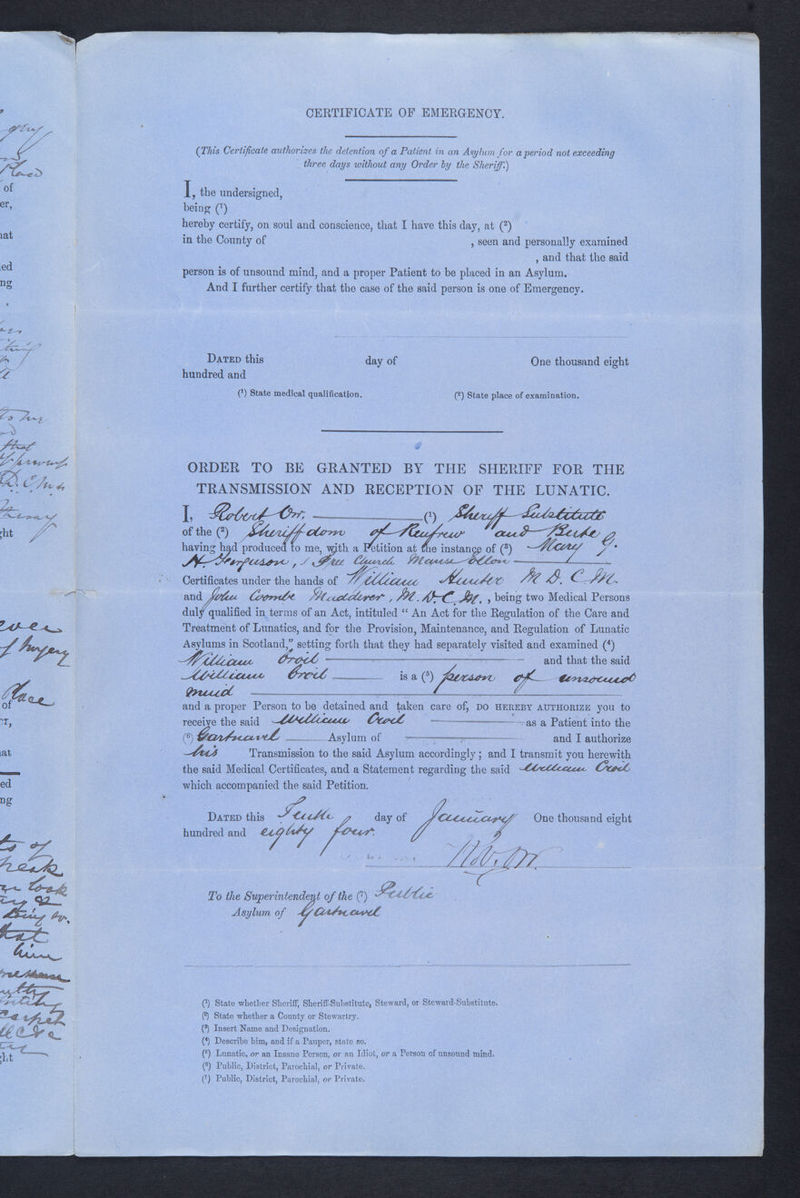 CERTIFICATE OF EMERGENCY.
(This Certificate authorizes the detention of a Patient in an Asylum for a period not exceeding
three days without any Order by the Sheriff.)
I, the undersigned,
being (¹)
hereby certify, on soul and conscience, that I have this day, at (²)
in the County of , seen and personally examined
, and that the said
person is of unsound mind, and a proper Patient to be placed in an Asylum.
And I further certify that the case of the said person is one of Emergency.
DATED this day of One thousand eight
hundred and
(¹) State medical qualification. (²) State place of examination.
ORDER TO BE GRANTED BY THE SHERIFF FOR THE
TRANSMISSION AND RECEPTION OF THE LUNATIC.
I, Robert Orr. (¹) Sheriff Substitute
of the (²) Sheriffdom of Renfrew and Bute
having had produced to me, with a Petition at the instance of (³) Mary
Ferguson, Free Church Manse
Certificates under the hands of William Hunter M.D. C.M.
and John Coombe M.D. C.M., being two Medical Persons
duly qualified in terms of an Act, intituled “ An Act for the Regulation of the Care and
Treatment of Lunatics, and for the Provision, Maintenance, and Regulation of Lunatic
Asylums in Scotland,” setting forth that they had separately visited and examined (⁴)
William Croil and that the said
William Croil is a (⁵) person of unsound
mind
and a proper Person to be detained and taken care of, DO HEREBY AUTHORIZE you to
receive the said William Croil as a Patient into the
(⁶) Gartnavel Asylum of and I authorize
his Transmission to the said Asylum accordingly; and I transmit you herewith
the said Medical Certificates, and a Statement regarding the said William Croil
which accompanied the said Petition.
DATED this Tenth day of January One thousand eight
hundred and eighty four.
Rob. Orr.
To the Superintendent of the (⁷) Public
Asylum of Gartnavel
(¹) State whether Sheriff, Sheriff-Substitute, Steward, or Steward-Substitute.
(²) State whether a County or Stewartry.
(³) Insert Name and Designation.
(⁴) Describe him, and if a Pauper, state so.
(⁵) Lunatic, or an Insane Person, or an Idiot, or a Person of unsound mind.
(⁶) Public, District, Parochial, or Private.
(⁷) Public, District, Parochial, or Private.